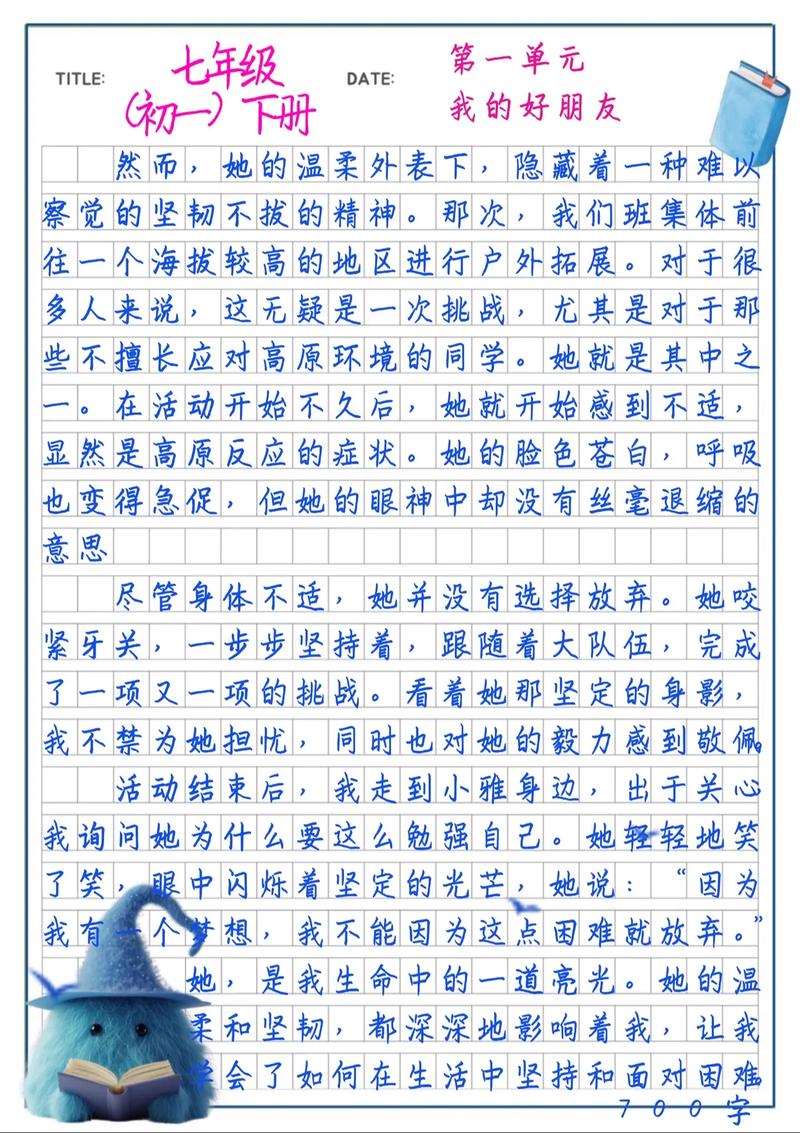 TITLE:
七年级
（初一）下册
DATE:
第一单元
我的好朋友
然而，她的温柔外表下，隐藏着一种难以
察觉的坚韧不拔的精神。那次，我们班集体前
往一个海拔较高的地区进行户外拓展。对于很
多人来说，这无疑是一次挑战，尤其是对于那
些不擅长应对高原环境的同学。她就是其中之
一。在活动开始不久后，她就开始感到不适，
显然是高原反应的症状。她的脸色苍白，呼吸
也变得急促，但她的眼神中却没有丝毫退缩的
意思
尽管身体不适，她并没有选择放弃。她咬
紧牙关，一步步坚持着，跟随着大队伍，完成
了一项又一项的挑战。看着她那坚定的身影，
我不禁为她担忧，同时也对她的毅力感到敬佩。
活动结束后，我走到小雅身边，出于关心
我询问她为什么要这么勉强自己。她轻轻地笑
了笑，眼中闪烁着坚定的光芒，她说：“因为
我有一个梦想，我不能因为这点困难就放弃。”
她，是我生命中的一道亮光。她的温
柔和坚韧，都深深地影响着我，让我
学会了如何在生活中坚持和面对困难。
700字